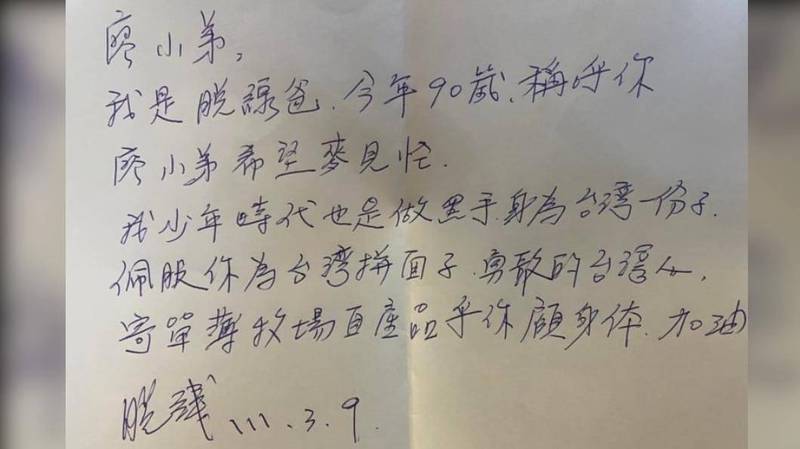 廖小弟,
我是脫線爸.今年90歲.稱呼你
廖小弟希望麥見怪.
我少年時代也是做黑手.身為台灣一份子.
佩服你為台灣拼面子.勇敢的台灣人.
寄單薄牧場自產品乎你顧身体.加油
脫線 111.3.9.